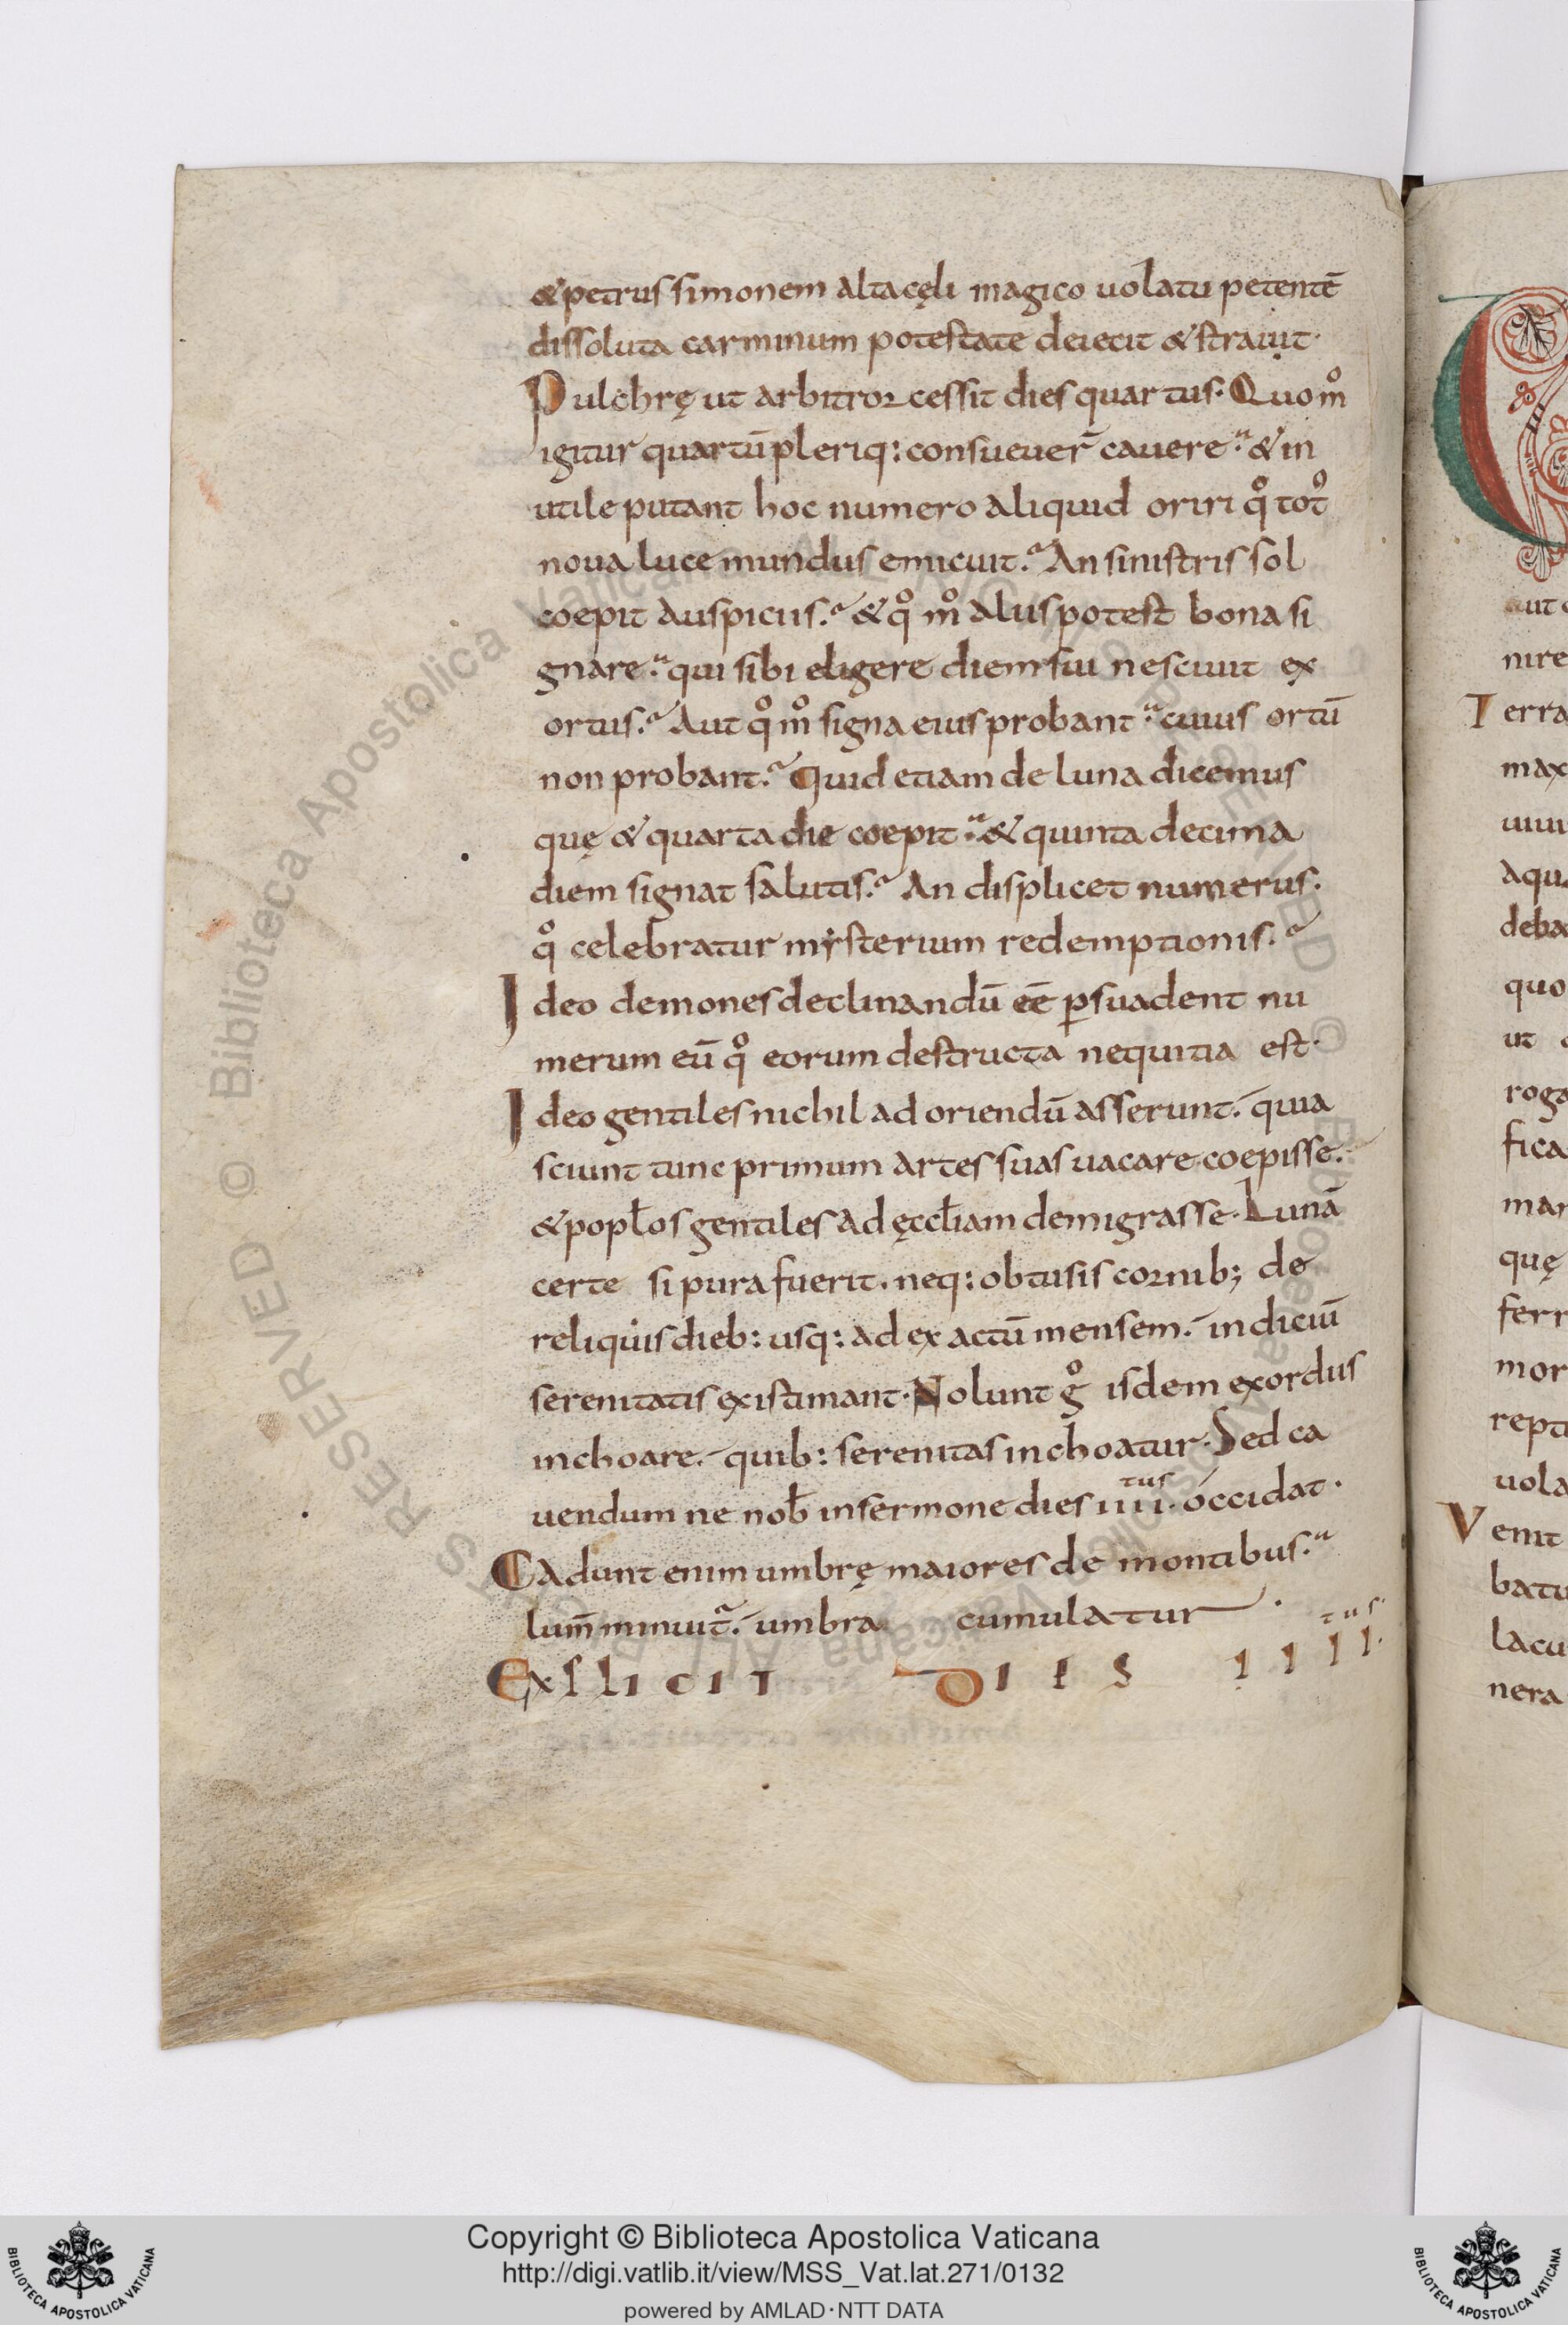 &petrus simonem alta cęli magico uolatu petentē
dissoluta carminum potestate deiecit & strauit·
Pulchrę ut arbitror cessit dies quartus· Quo m̊
igitur quartū pleriq: consueuer̄ cauere & in
utile putant hoc numero aliquid oriri q̊ tot̊
noua luce mundus emicuit. An sinistris sol
coepit auspiciis. & q̊ m̊ aliis potest bona si
gnare qui sibi eligere diem sui nesciuit ex
ortus. Aut q̊ m̊ signa eius probant cuius ortū
non probant. Quid etiam de luna dicemus
quę & quarta die coepit & quinta decima
diem signat salutis. An displicet numerus·
q̊ celebratur mẏsterium redemptionis.
Ideo demones declinandū eē p̱suadent nu
merum eū q̊ eorum destructa nequitia est·
Ideo gentiles nichil ad oriendū asserunt. quia
sciunt tunc primum artes suas uacare coepisse.
& popłos gentiles ad ęccłiam demigrasse· Lunā
certe si pura fuerit. neq: obtusis cornib; de
reliquis dieb: usq: ad exactū mensem. indiciū
serenitatis existimant· Nolunt g̊ isdem exordiis
inchoare. quib: serenitas inchoatur· Sed ca
uendum ne nob̄ in sermone dies iiii·tus occidat·
Cadunt enim umbrę maiores de montibus.
lum̄ minuit̃. umbra cumulatur·
Explicit DIES IIII·tus·
aut
nire
Terra
max
uiui
aqua
deba
quo
ut
roga
fica
man
quę
ferr
mor
repti
uola
Venit
batu
lacu
nera
© Biblioteca Apostolica Vaticana
Copyright © Biblioteca Apostolica Vaticana
http://digi.vatlib.it/view/MSS_Vat.lat.271/0132
powered by AMLAD·NTT DATA
BIBLIOTECA APOSTOLICA VATICANA
BIBLIOTECA APOSTOLICA VATICANA